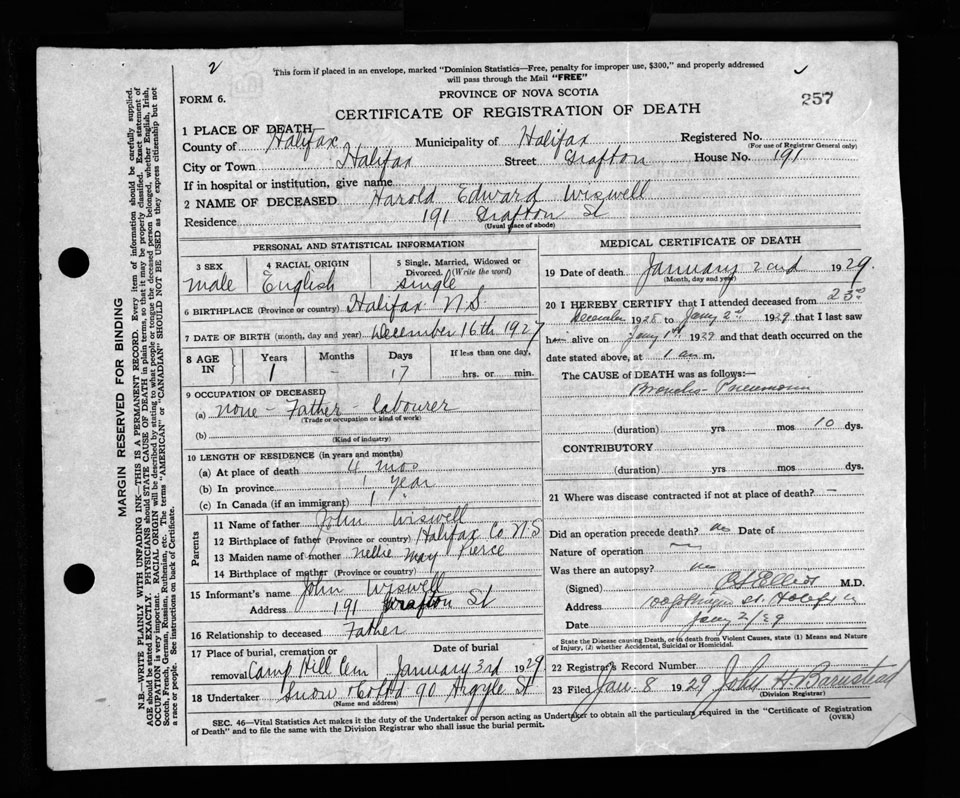 2
This form if placed in an envelope, marked "Dominion Statistics—Free, penalty for improper use, $300," and properly addressed
will pass through the Mail "FREE"
PROVINCE OF NOVA SCOTIA
FORM 6.
CERTIFICATE OF REGISTRATION OF DEATH
257
1 PLACE OF DEATH—
County of Halifax Municipality of Halifax Registered No.
(For use of Registrar General only)
City or Town Halifax Street Grafton House No. 191
If in hospital or institution, give name
2 NAME OF DECEASED Harold Edward Wiswell
Residence 191 Grafton St
(Usual place of abode)
PERSONAL AND STATISTICAL INFORMATION
3 SEX male
4 RACIAL ORIGIN English
5 Single, Married, Widowed or
Divorced. (Write the word)
single
6 BIRTHPLACE (Province or country) Halifax N.S
7 DATE OF BIRTH (month, day and year) December 16th 1927
8 AGE IN
Years Months Days If less than one day,
1 - 17 hrs. or min.
9 OCCUPATION OF DECEASED
(a) none - Father - labourer
(Trade or occupation or kind of work)
(b)
(Kind of industry)
10 LENGTH OF RESIDENCE (in years and months)
(a) At place of death 4 mos
(b) In province 1 year
(c) In Canada (if an immigrant) 1 "
Parents
11 Name of father John Wiswell
12 Birthplace of father (Province or country) Halifax Co N.S
13 Maiden name of mother Nellie May Pierce
14 Birthplace of mother (Province or country)
15 Informant's name John Wiswell
Address 191 Grafton St
16 Relationship to deceased Father
17 Place of burial, cremation or Date of burial
removal Camp Hill Cem January 3rd 1929
18 Undertaker Snow & Co Ltd 90 Argyle St
(Name and address)
MEDICAL CERTIFICATE OF DEATH
19 Date of death January 2nd 1929.
(Month, day and year)
20 I HEREBY CERTIFY that I attended deceased from 23rd
December 1928 to Jany 2nd 1929 that I last saw
h alive on Jany 1st 1929 and that death occurred on the
date stated above, at 1 a m.
The CAUSE of DEATH was as follows:—
Broncho-Pneumonia
(duration) yrs mos 10 dys.
CONTRIBUTORY
(duration) yrs mos dys.
21 Where was disease contracted if not at place of death? —
Did an operation precede death? no Date of
Nature of operation —
Was there an autopsy? no
(Signed) M.D.
Address St. Halifax
Date Jany 2/29
State the Disease causing Death, or in death from Violent Causes, state (1) Means and Nature
of Injury, (2) whether Accidental, Suicidal or Homicidal.
22 Registrar's Record Number
23 Filed Jan. 8 1929 John H. Barnstead
(Division Registrar)
SEC. 46—Vital Statistics Act makes it the duty of the Undertaker or person acting as Undertaker to obtain all the particulars required in the "Certificate of Registration
of Death" and to file the same with the Division Registrar who shall issue the burial permit.
(OVER)
MARGIN RESERVED FOR BINDING
N.B.—WRITE PLAINLY WITH UNFADING INK—THIS IS A PERMANENT RECORD. Every item of information should be carefully supplied.
AGE should be stated EXACTLY. PHYSICIANS should STATE CAUSE OF DEATH in plain terms, so that it may be properly classified. Exact statement of
OCCUPATION is very important. RACIAL ORIGIN will be described by stating to what people or tongue the deceased person belonged, whether English, Irish,
Scotch, French, German, Russian, Ruthenian, etc. The terms "AMERICAN" or "CANADIAN" SHOULD NOT BE USED as they express citizenship but not
a race or people. See instructions on back of Certificate.